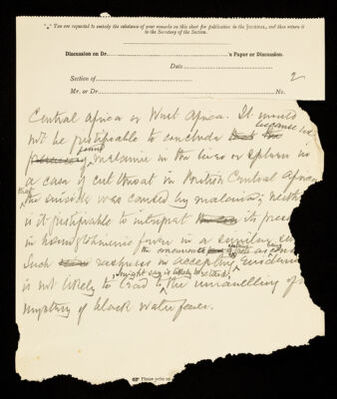 "*" You are requested to embody the substance of your remarks on this sheet for publication in the JOURNAL, and then return it
to the Secretary of the Section.
Discussion on Dr. 's Paper or Discussion.
Date
Section of 2
Mr. or Dr. No.
Central Africa or West Africa. It would
not be justifiable to conclude because we
found melanin in the liver or spleen in
a case of cut throat in British Central Africa
that the suicide was caused by malaria;
is it justifiable to interpret its
in haemoglobinuric fever in a similar
Such rashness in accepting
is not likely to lead to the unravelling of
mystery of black water fever.
Please